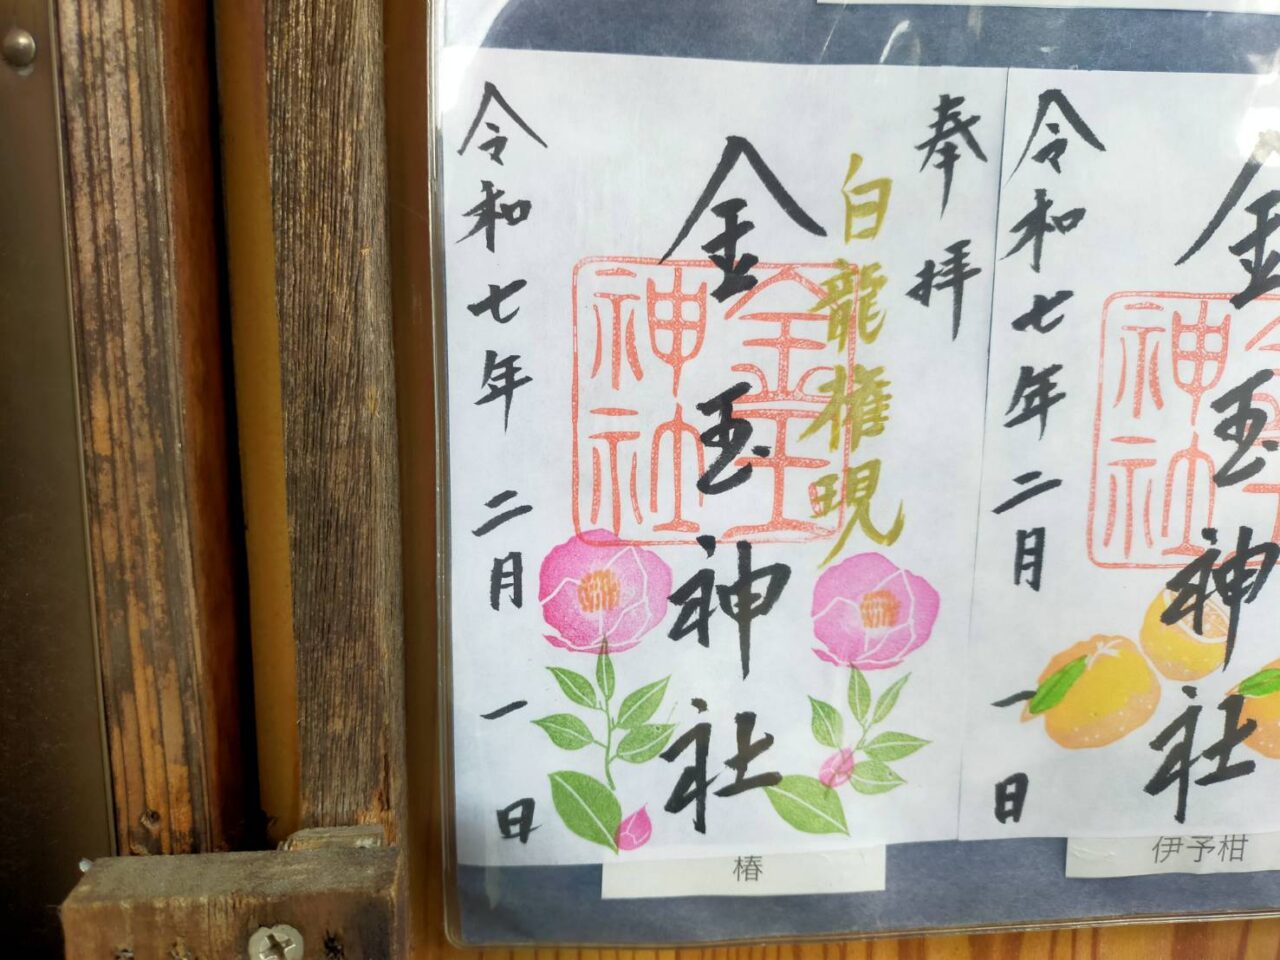 奉拝
白龍権現
金玉神社
金玉神社
令和七年二月一日
椿
金玉神社
令和七年二月一日
伊予柑